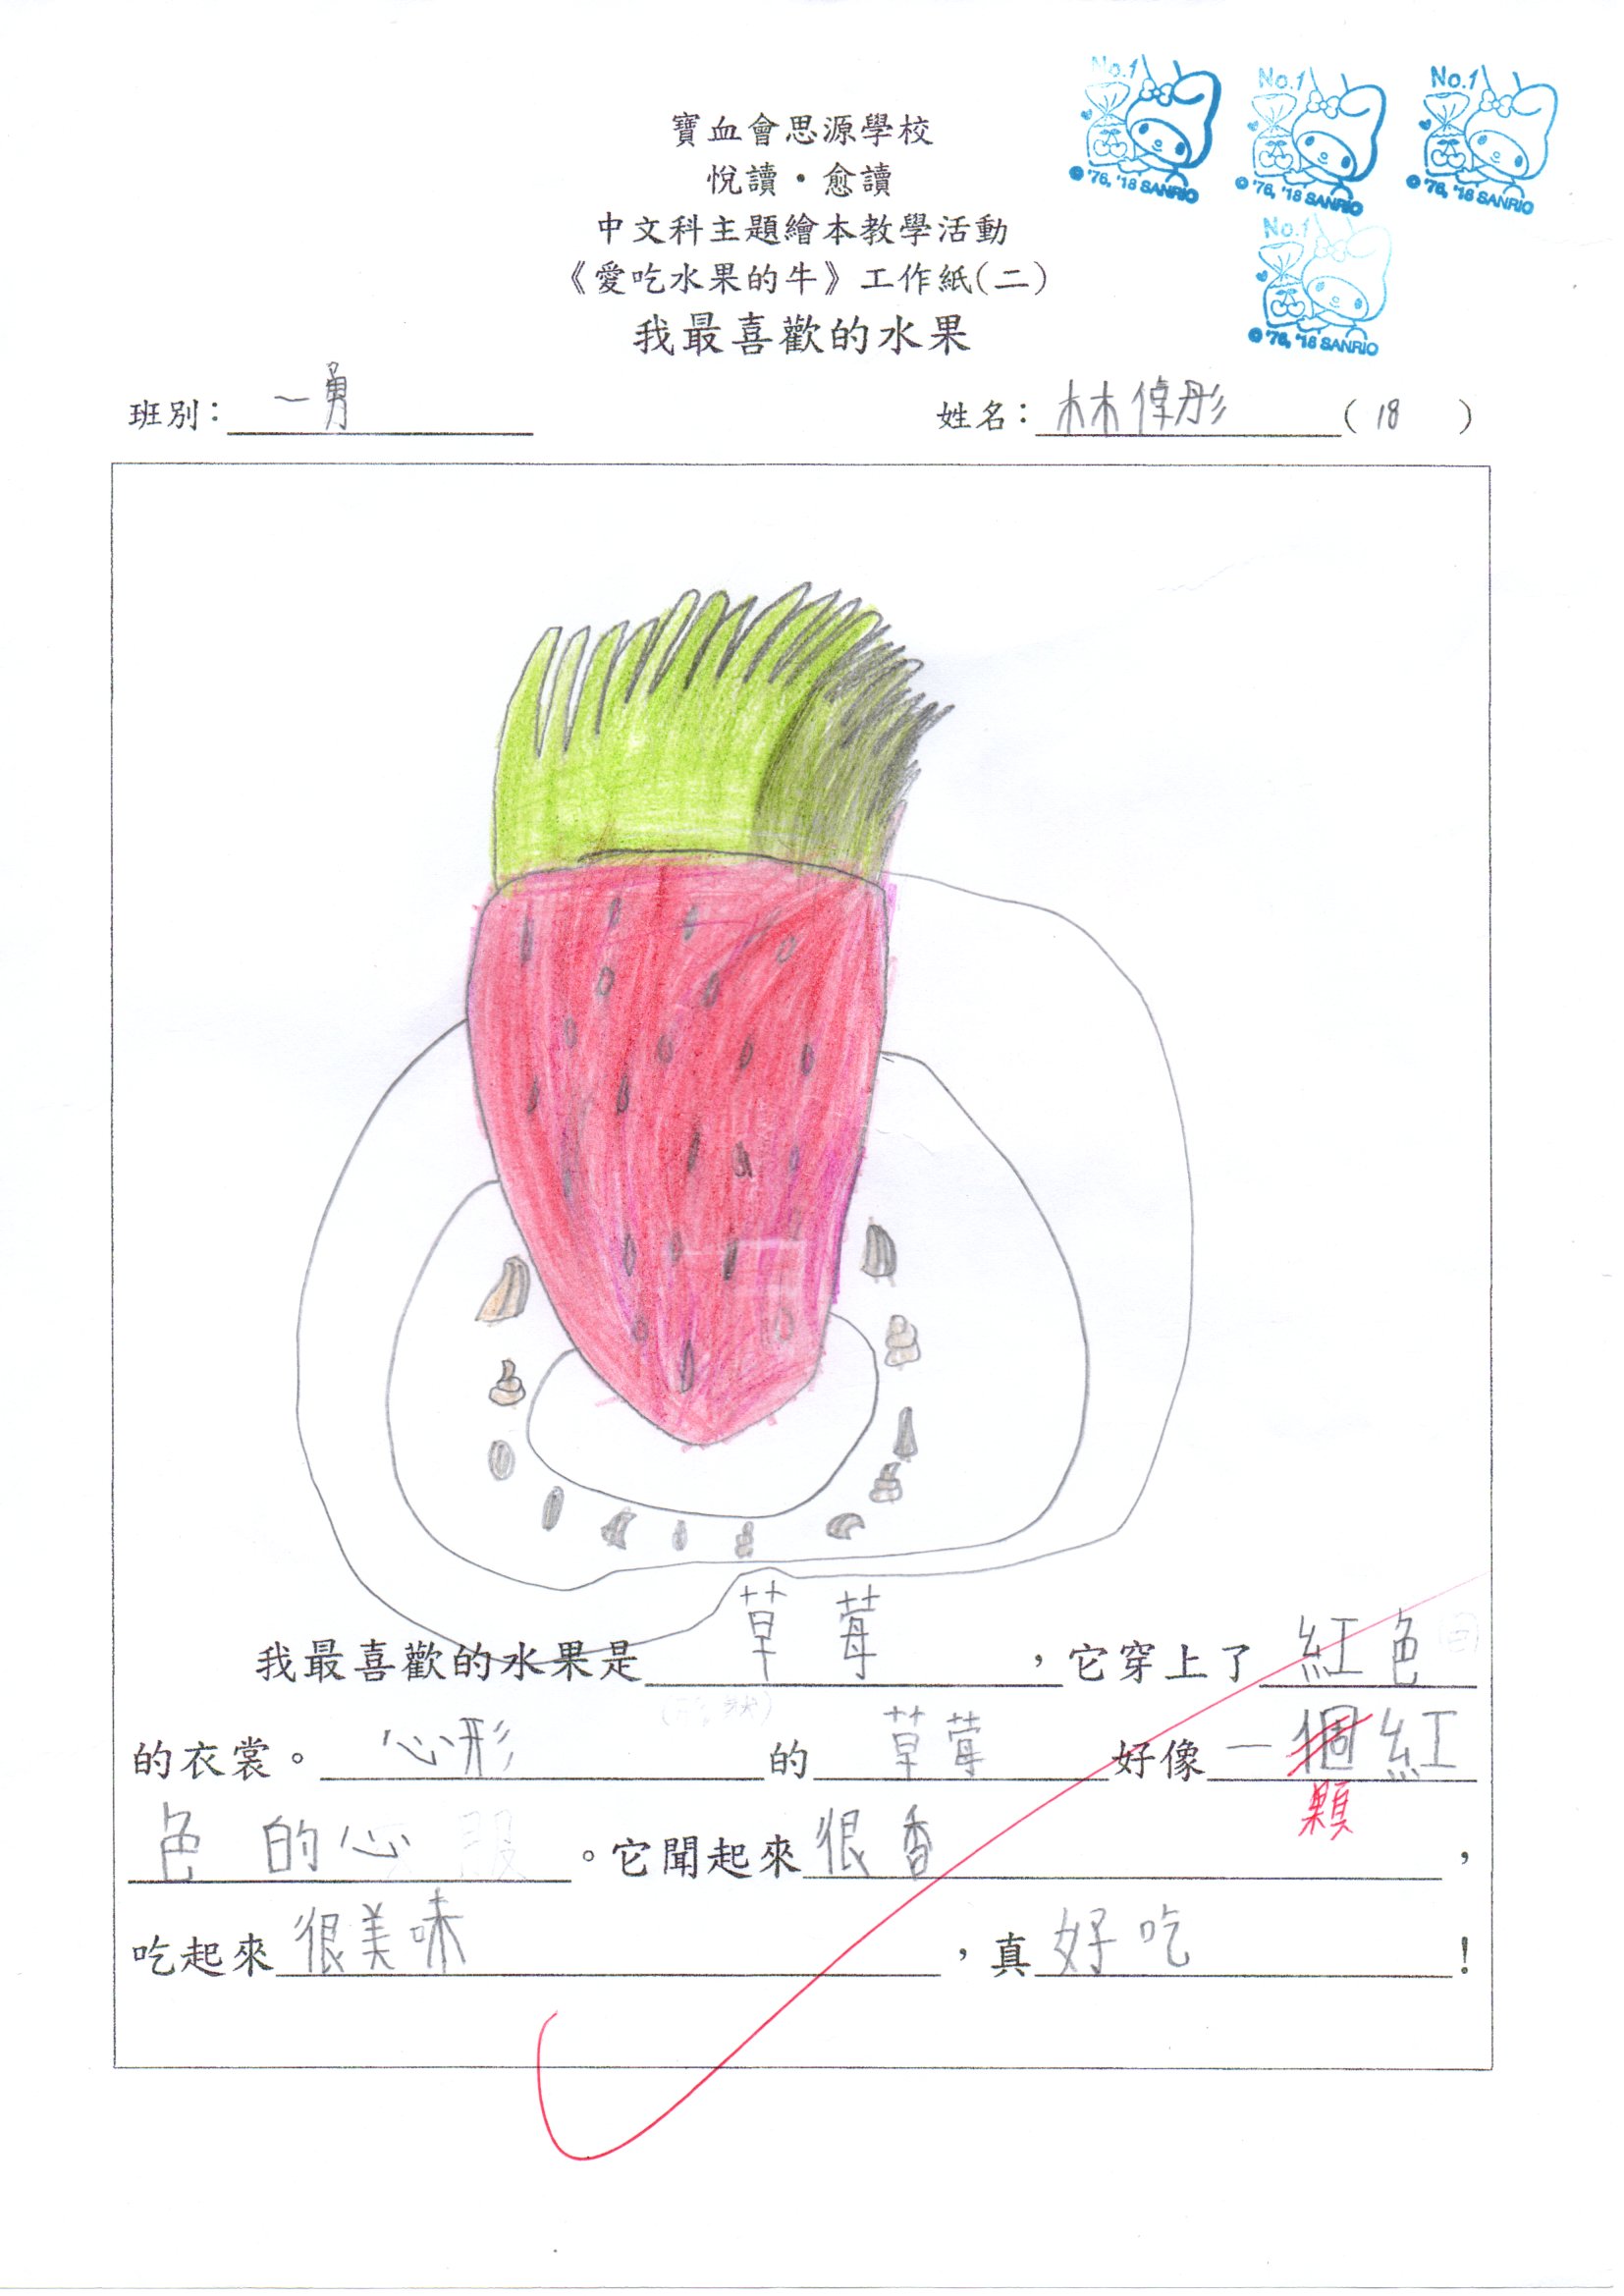 No.1
© '76, '18 SANRIO
No.1
© '76, '18 SANRIO
No.1
© '76, '18 SANRIO
No.1
© '76, '18 SANRIO
寶血會思源學校
悅讀・愈讀
中文科主題繪本教學活動
《愛吃水果的牛》工作紙(二)
我最喜歡的水果
班別：一勇 姓名：林倬彤 (18)
我最喜歡的水果是草莓，它穿上了紅色
的衣裳。心形的草莓好像一個紅
顆
色的心。它聞起來很香，
吃起來很美味，真好吃！